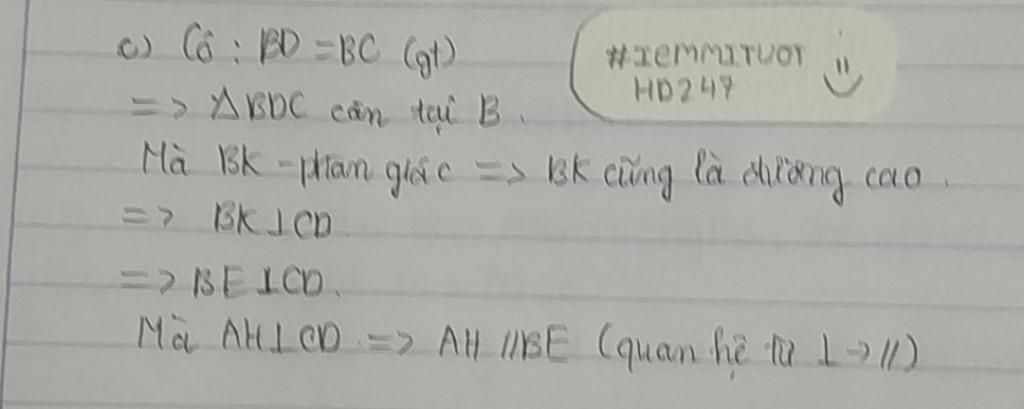 c) Có : BD = BC (gt)
#IEMMITUOT
HD247
=> ΔBDC cân tại B.
Mà BK - phân giác => BK cũng là đường cao.
=> BK⊥CD
=> BE⊥CD.
Mà AH⊥CD => AH //BE (quan hệ từ ⊥ -> //)